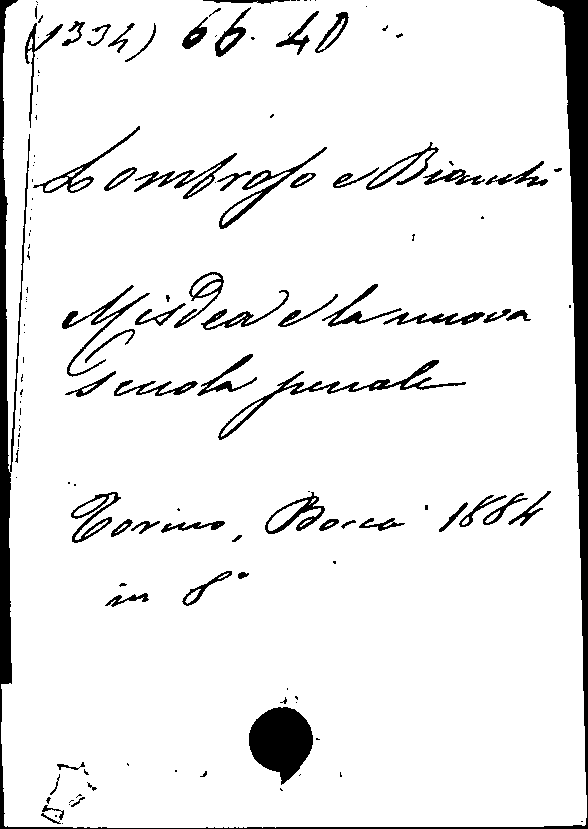 (1334) 66. 40
Lombroso e Bianchi
Misdea e la nuova
scuola penale
Torino, Bocca 1884
in 8°